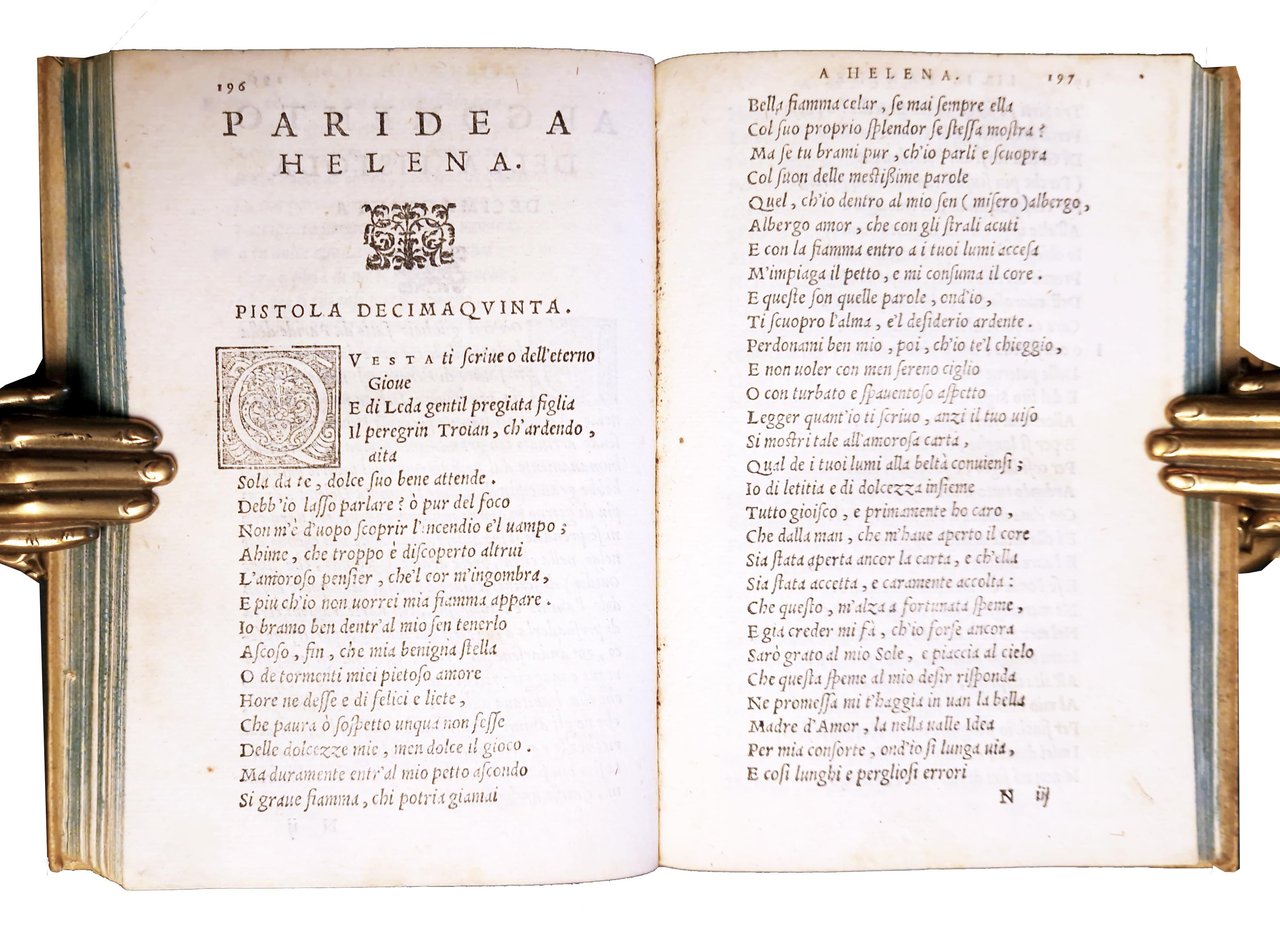 196
PARIDE A
HELENA.
PISTOLA DECIMAQVINTA.
QVESTA ti scriue o dell'eterno
Gioue
E di Leda gentil pregiata figlia
Il peregrin Troian, ch'ardendo,
aita
Sola da te, dolce suo bene attende.
Debb'io lasso parlare? ò pur del foco
Non m'è d'uopo scoprir l'incendio e'l uampo;
Ahime, che troppo è discoperto altrui
L'amoroso pensier, che'l cor m'ingombra,
E piu ch'io non uorrei mia fiamma appare.
Io bramo ben dentr'al mio sen tenerlo
Ascoso, fin, che mia benigna stella
O de tormenti miei pietoso amore
Hore ne desse e di felici e liete,
Che paura ò sospetto unqua non fesse
Delle dolcezze mie, men dolce il gioco.
Ma duramente entr'al mio petto ascondo
Si graue fiamma, chi potria giamai
A HELENA. 197
Bella fiamma celar, se mai sempre ella
Col suo proprio splendor se stessa mostra?
Ma se tu brami pur, ch'io parli e scuopra
Col suon delle mestißime parole
Quel, ch'io dentro al mio sen (misero) albergo,
Albergo amor, che con gli strali acuti
E con la fiamma entro a i tuoi lumi accesa
M'impiaga il petto, e mi consuma il core.
E queste son quelle parole, ond'io,
Ti scuopro l'alma, e'l desiderio ardente.
Perdonami ben mio, poi, ch'io te'l chieggio,
E non uoler con men sereno ciglio
O con turbato e spauentoso aspetto
Legger quant'io ti scriuo, anzi il tuo uiso
Si mostri tale all'amorosa carta,
Qual de i tuoi lumi alla beltà conuiensi;
Io di letitia e di dolcezza insieme
Tutto gioisco, e primamente ho caro,
Che dalla man, che m'haue aperto il core
Sia stata aperta ancor la carta, e ch'ella
Sia stata accetta, e caramente accolta:
Che questo, m'alza a fortunata speme,
E gia creder mi fà, ch'io forse ancora
Sarò grato al mio Sole, e piaccia al cielo
Che questa speme al mio desir risponda
Ne promessa mi t'haggia in uan la bella
Madre d'Amor, la nella ualle Idea
Per mia consorte, ond'io sì lunga uia,
E così lunghi e pergliosi errori
N iij